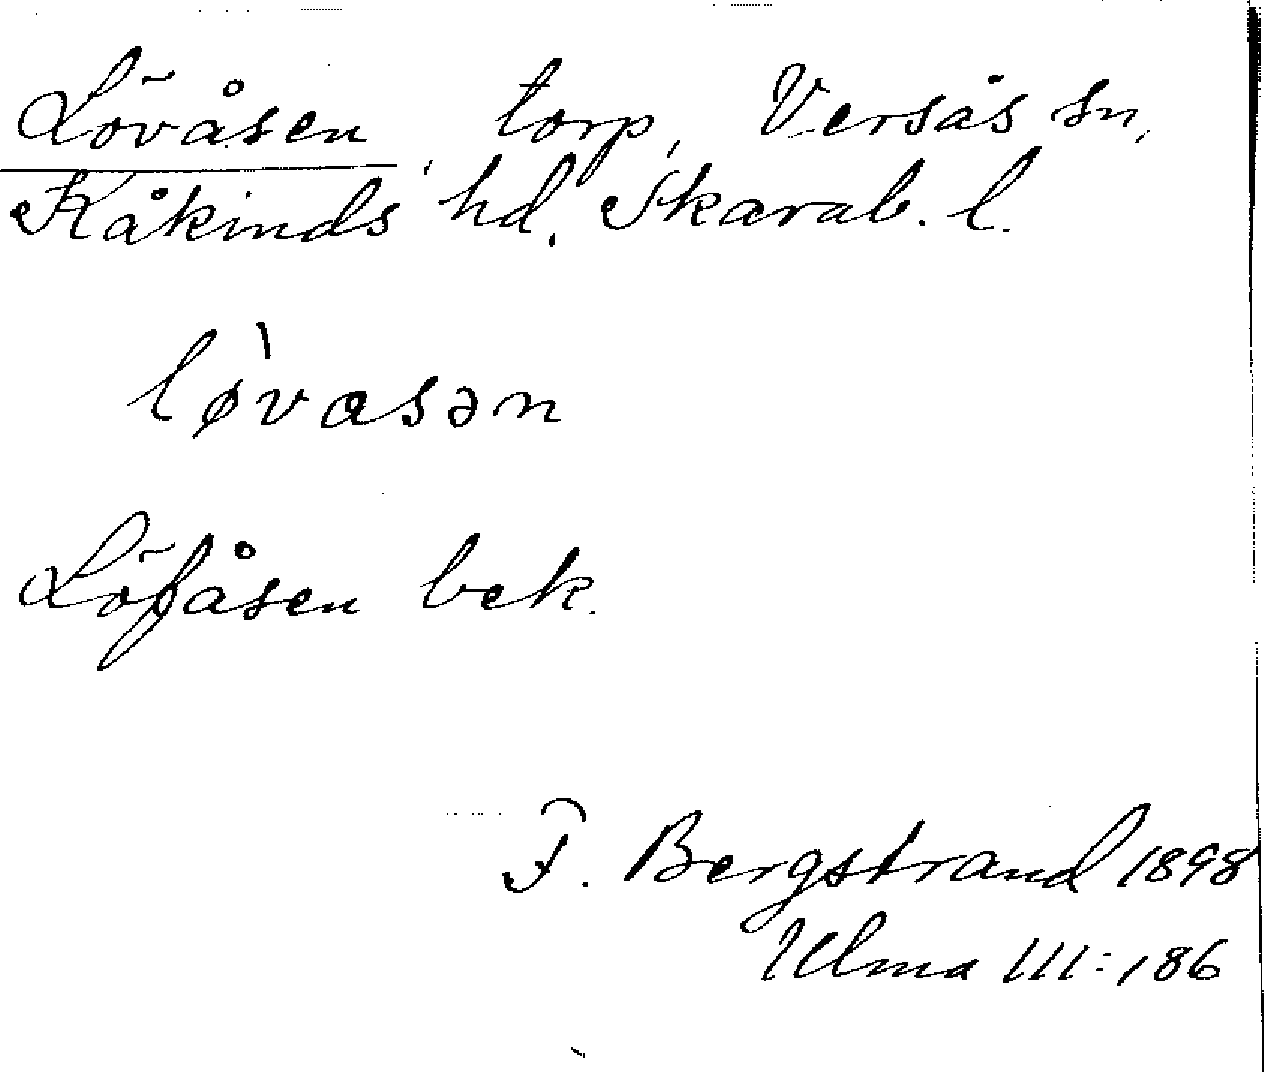 Lövåsen, torp, Versås sn,
Kåkinds hd, Skarab. l.
lø̀vasən
Löfåsen bek.
F. Bergstrand 1898
Ulma III:186